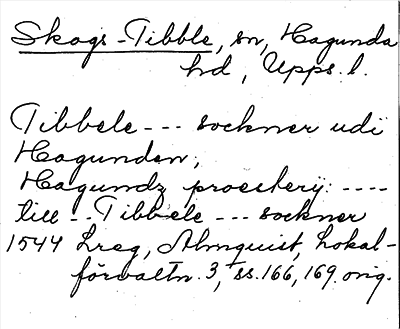 Skogs-Tibble, sn, Hagunda
hd, Upps. l.
Tibbele --- sockner udi
Hagunden;
Hagundz proesterij: ----
till -- Tibbele --- sockner
1544 Lreg, Almquist, Lokal-
förvaltn. 3, ss. 166, 169. orig.